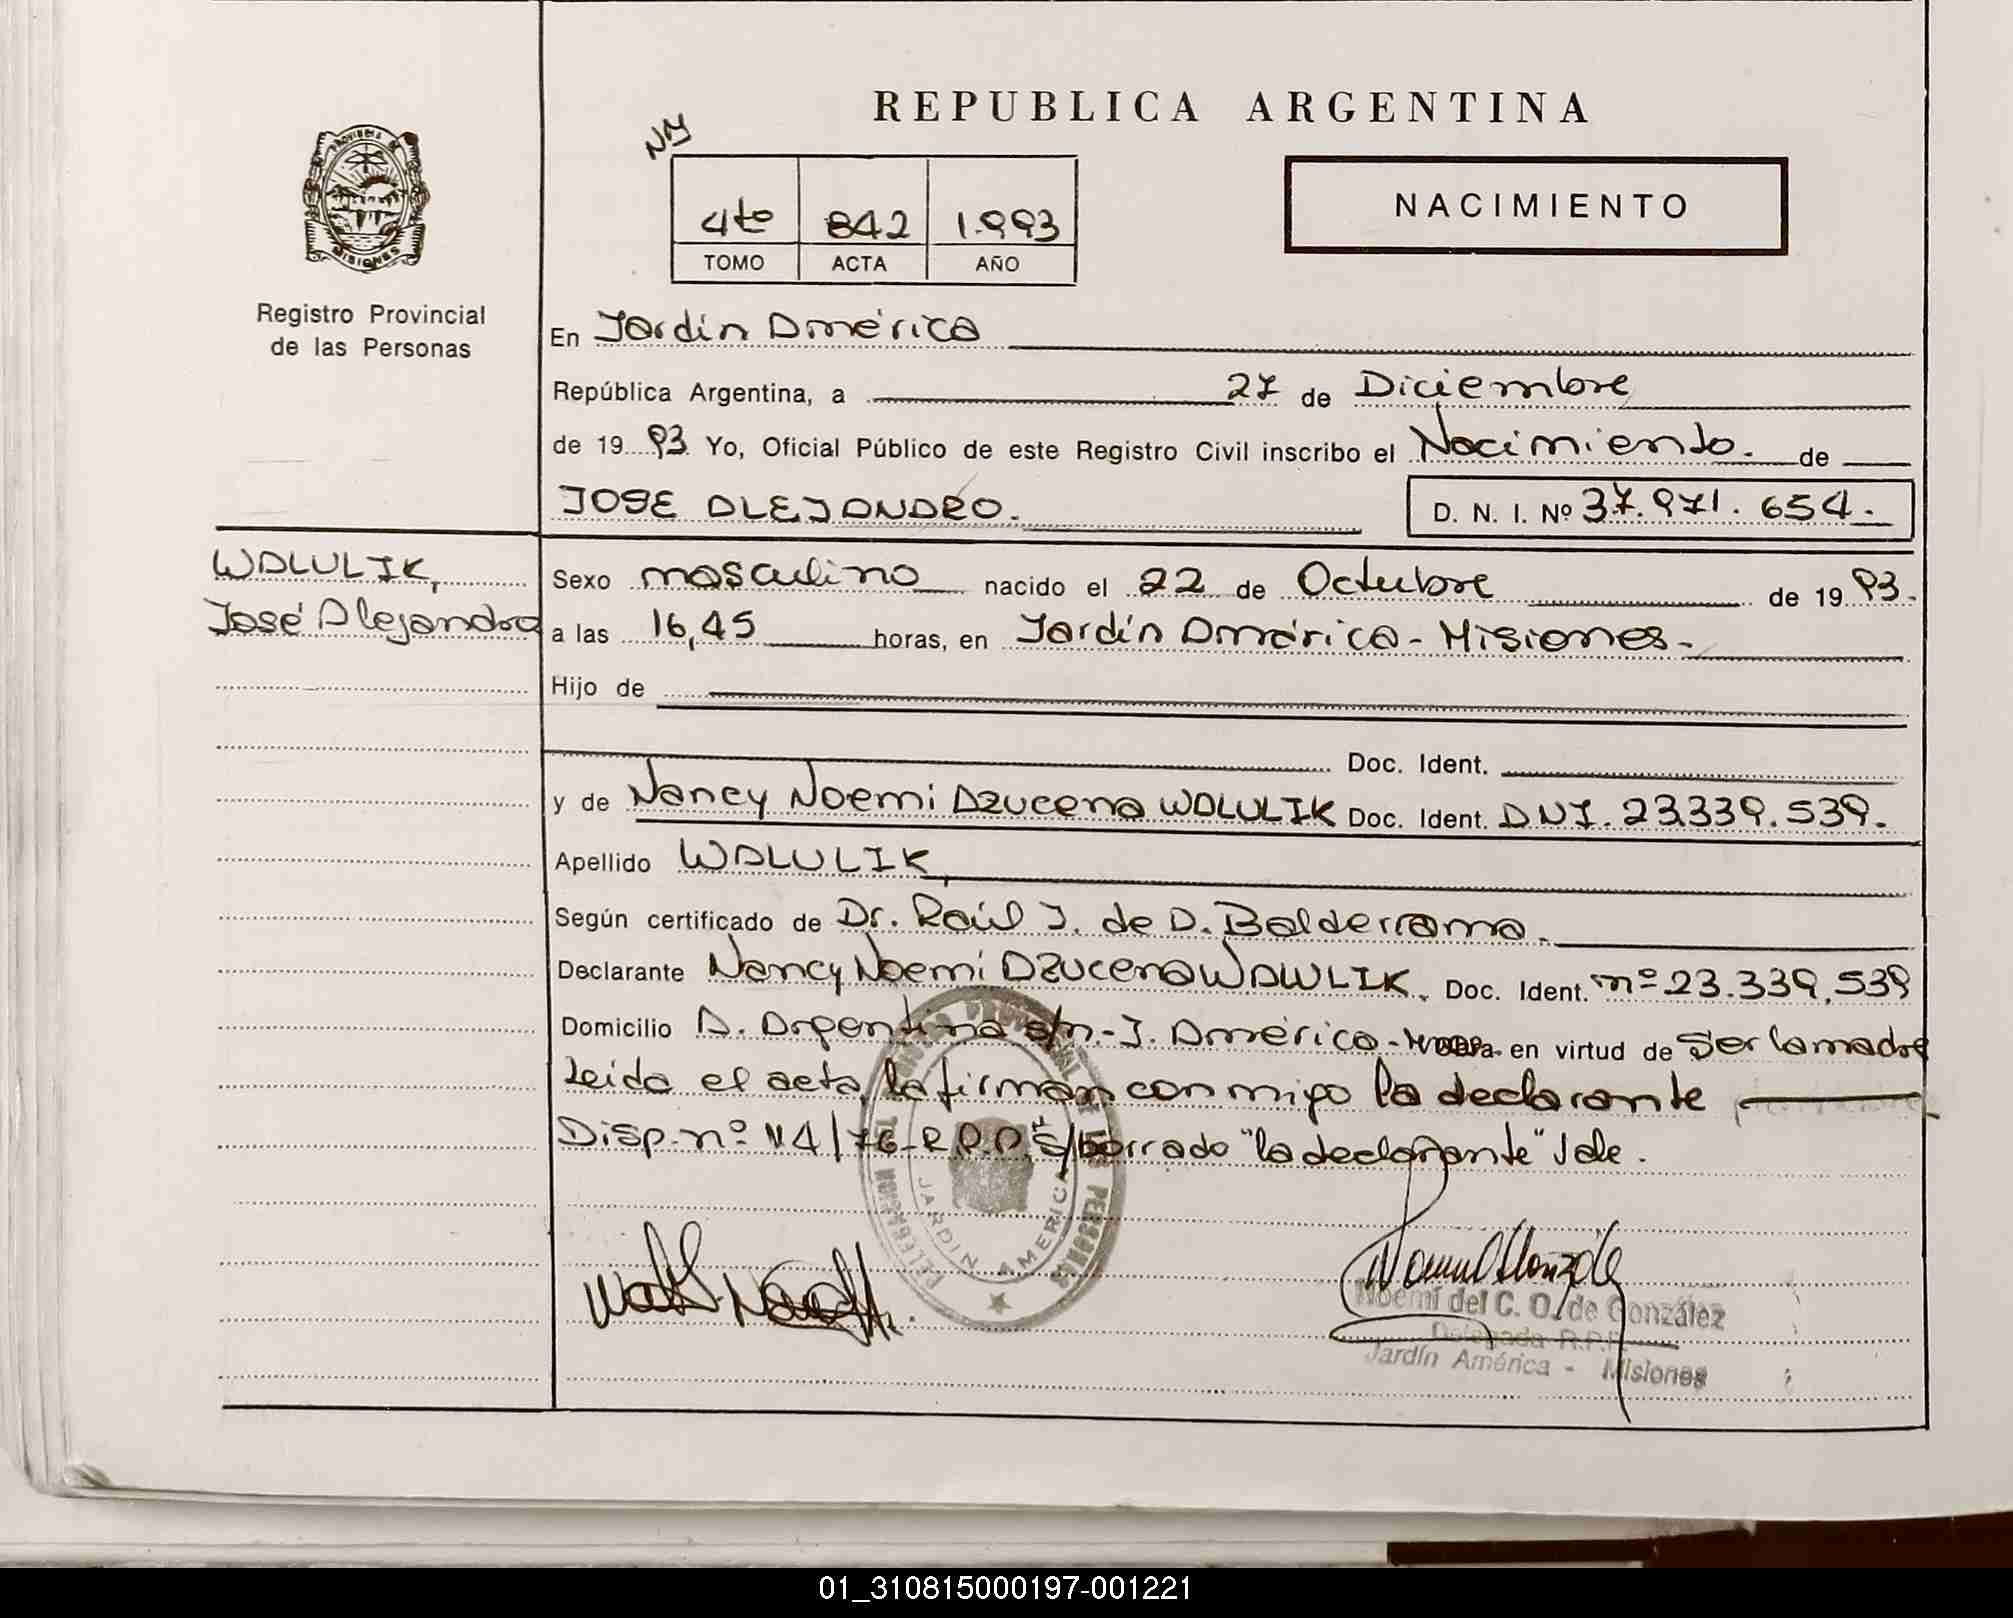 REPUBLICA ARGENTINA
NM
4to 842 1.993
TOMO ACTA AÑO
NACIMIENTO
PROVINCIA DE
MISIONES
Registro Provincial
de las Personas
En Jardín América
República Argentina, a 27 de Diciembre
de 19 93 Yo, Oficial Público de este Registro Civil inscribo el Nacimiento. de
JOSE ALEJANDRO. D. N. I. Nº 37.971.654.
WALULIK,
José Alejandro
Sexo masculino nacido el 22 de Octubre de 19 93.
a las 16,45 horas, en Jardín América - Misiones.
Hijo de
Doc. Ident.
y de Nancy Noemi Azucena WALULIK Doc. Ident. DNI. 23.339.539.
Apellido WALULIK,
Según certificado de Dr. Raúl J. de D. Balderrama.
Declarante Nancy Noemi Azucena WAWLIK. Doc. Ident. nº 23.339.539
Domicilio A. Argentina s/n.- J. América - en virtud de Ser la madre
Leida el acta, la firman conmigo la declarante
Disp. nº 114/76-R.P.P. S/borrado "la declarante" Vale.
JARDIN AMERICA
Noemí del C. O. de González
Delegada R.P.P.
Jardín América - Misiones
01_310815000197-001221